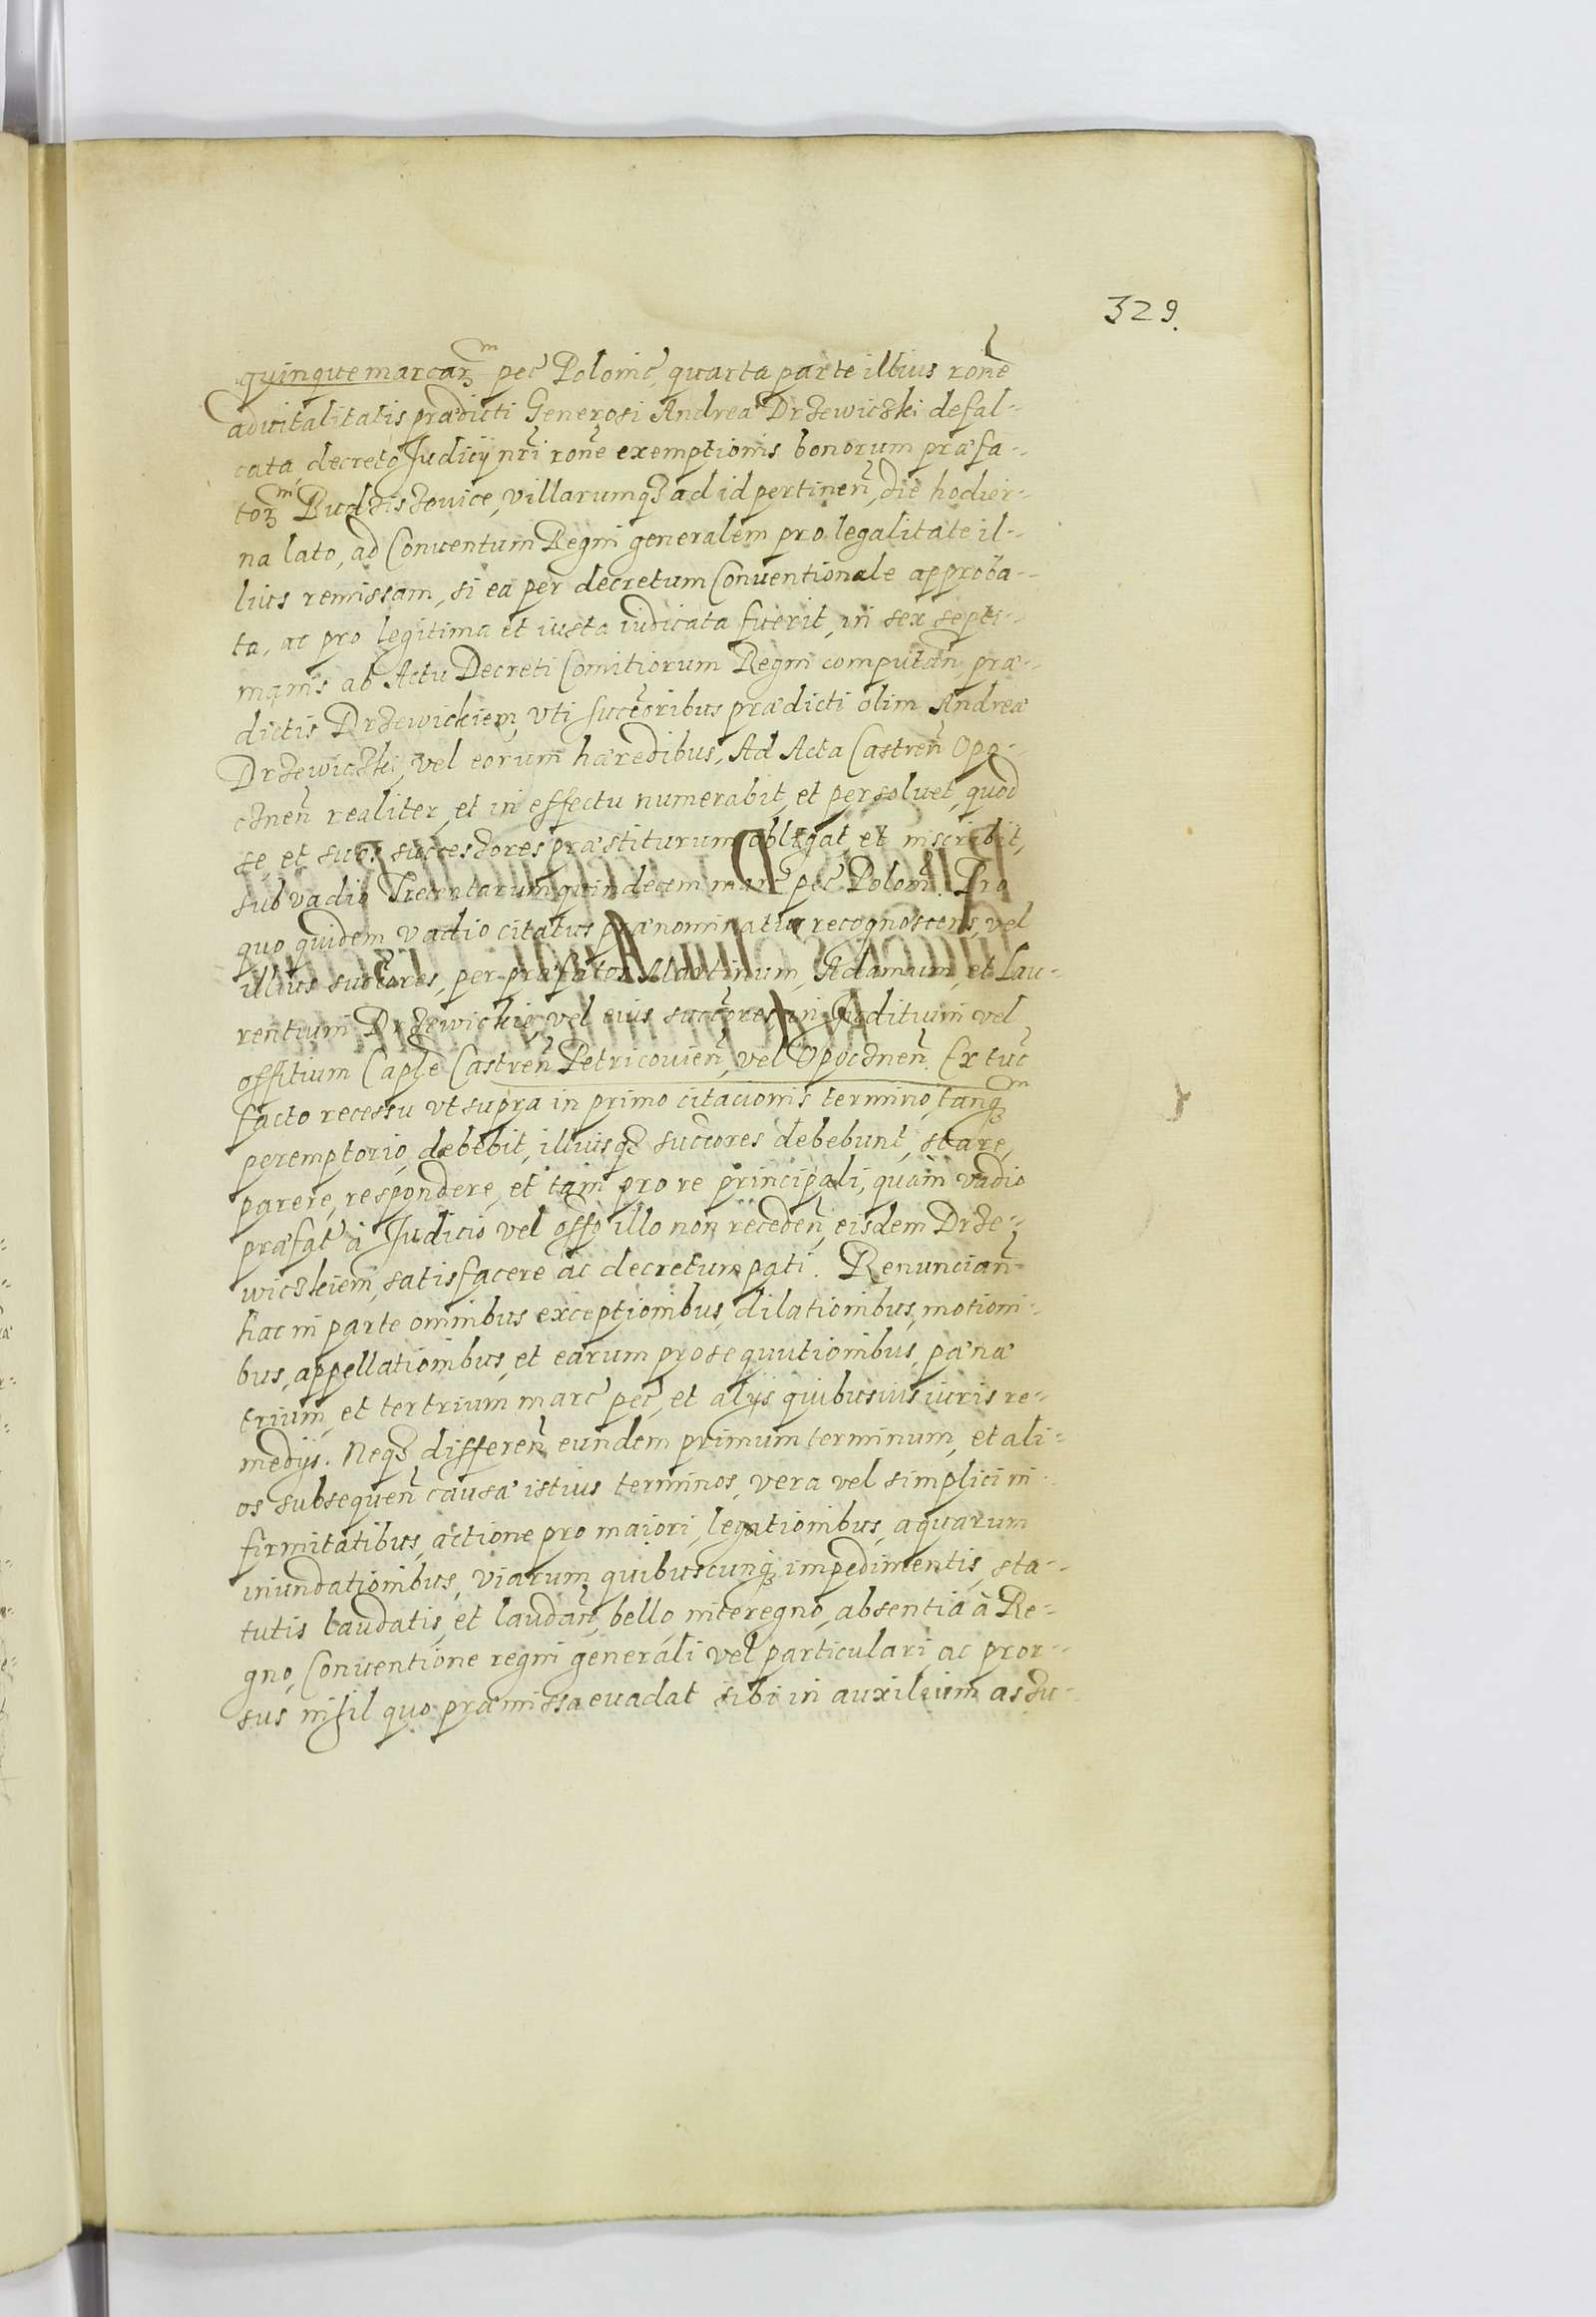 329.
quinque marcarȝͫ pec̃ Polonic̃, quarta parte illius rõne
aduitalitatis prædicti Generosi Andreæ Drzewiczki defal-
cata, decreto Judicij nr̃i rõne exemptionis bonorum præfa-
torȝͫ Budziszowice, villarumqȝ ad id pertineñ, die hodier-
na lato, ad Conuentum Regni generalem pro legalitate il-
lius remissam, si ea per decretum Conuentionale approba-
ta, ac pro legitima et iusta iudicata fuerit, in sex septi-
manis ab Actu Decreti Comitiorum Regni computañ, præ-
dictis Drzewickiem, vti succ̃oribus prædicti olim Andreæ
Drzewiczki, vel eorum hæredibus, Ad Acta Castreñ Opo-
czneñ realiter, et in effectu numerabit, et persoluet, quod
se, et suos successores præstiturum obligat, et inscribit,
sub vadio Trecentarum quindecem marc̃ pec̃ Poloñ. Pro
quo quidem vadio citatus prænominatus recognoscens, vel
illius succ̃ores, per præfatos Martinum, Adamum, et Lau-
rentium Drzewickie, vel eius succ̃ores, in Juditium vel
offitium Capl̃e Castreñ Petricouieñ, vel Opoczneñ. Ex tuc̃
facto recessu vt supra in primo citacionis termino, tanqȝͫ
peremptorio, debebit, illiusqȝ succ̃ores debebunt, stare,
parere, respondere, et tam pro re principali, quàm vadio
præfat̃ à Judicio vel off̃o illo non recedeñ, eisdem Drze-
wiczkiem, satisfacere ac decretum pati. Renunciañ
hac in parte omnibus exceptionibus, dilationibus, motioni-
bus, appellationibus, et earum prosequutionibus, pænæ
trium, et tertrium marc̃ pec̃, et alijs quibusuis iuris re-
medijs. Neqȝ differeñ eundem primum terminum, et ali-
os subsequeñ causæ istius terminos, vera vel simplici in-
firmitatibus, actione pro maiori, legationibus, aquarum
inundationibus, viarum quibuscunqȝ impedimentis, sta-
tutis laudatis, et laudañ, bello, interegno, absentia à Re-
gno, Conuentione regni generali vel particulari, ac pror-
sus nihil quo præmissa euadat sibi in auxilium assu-